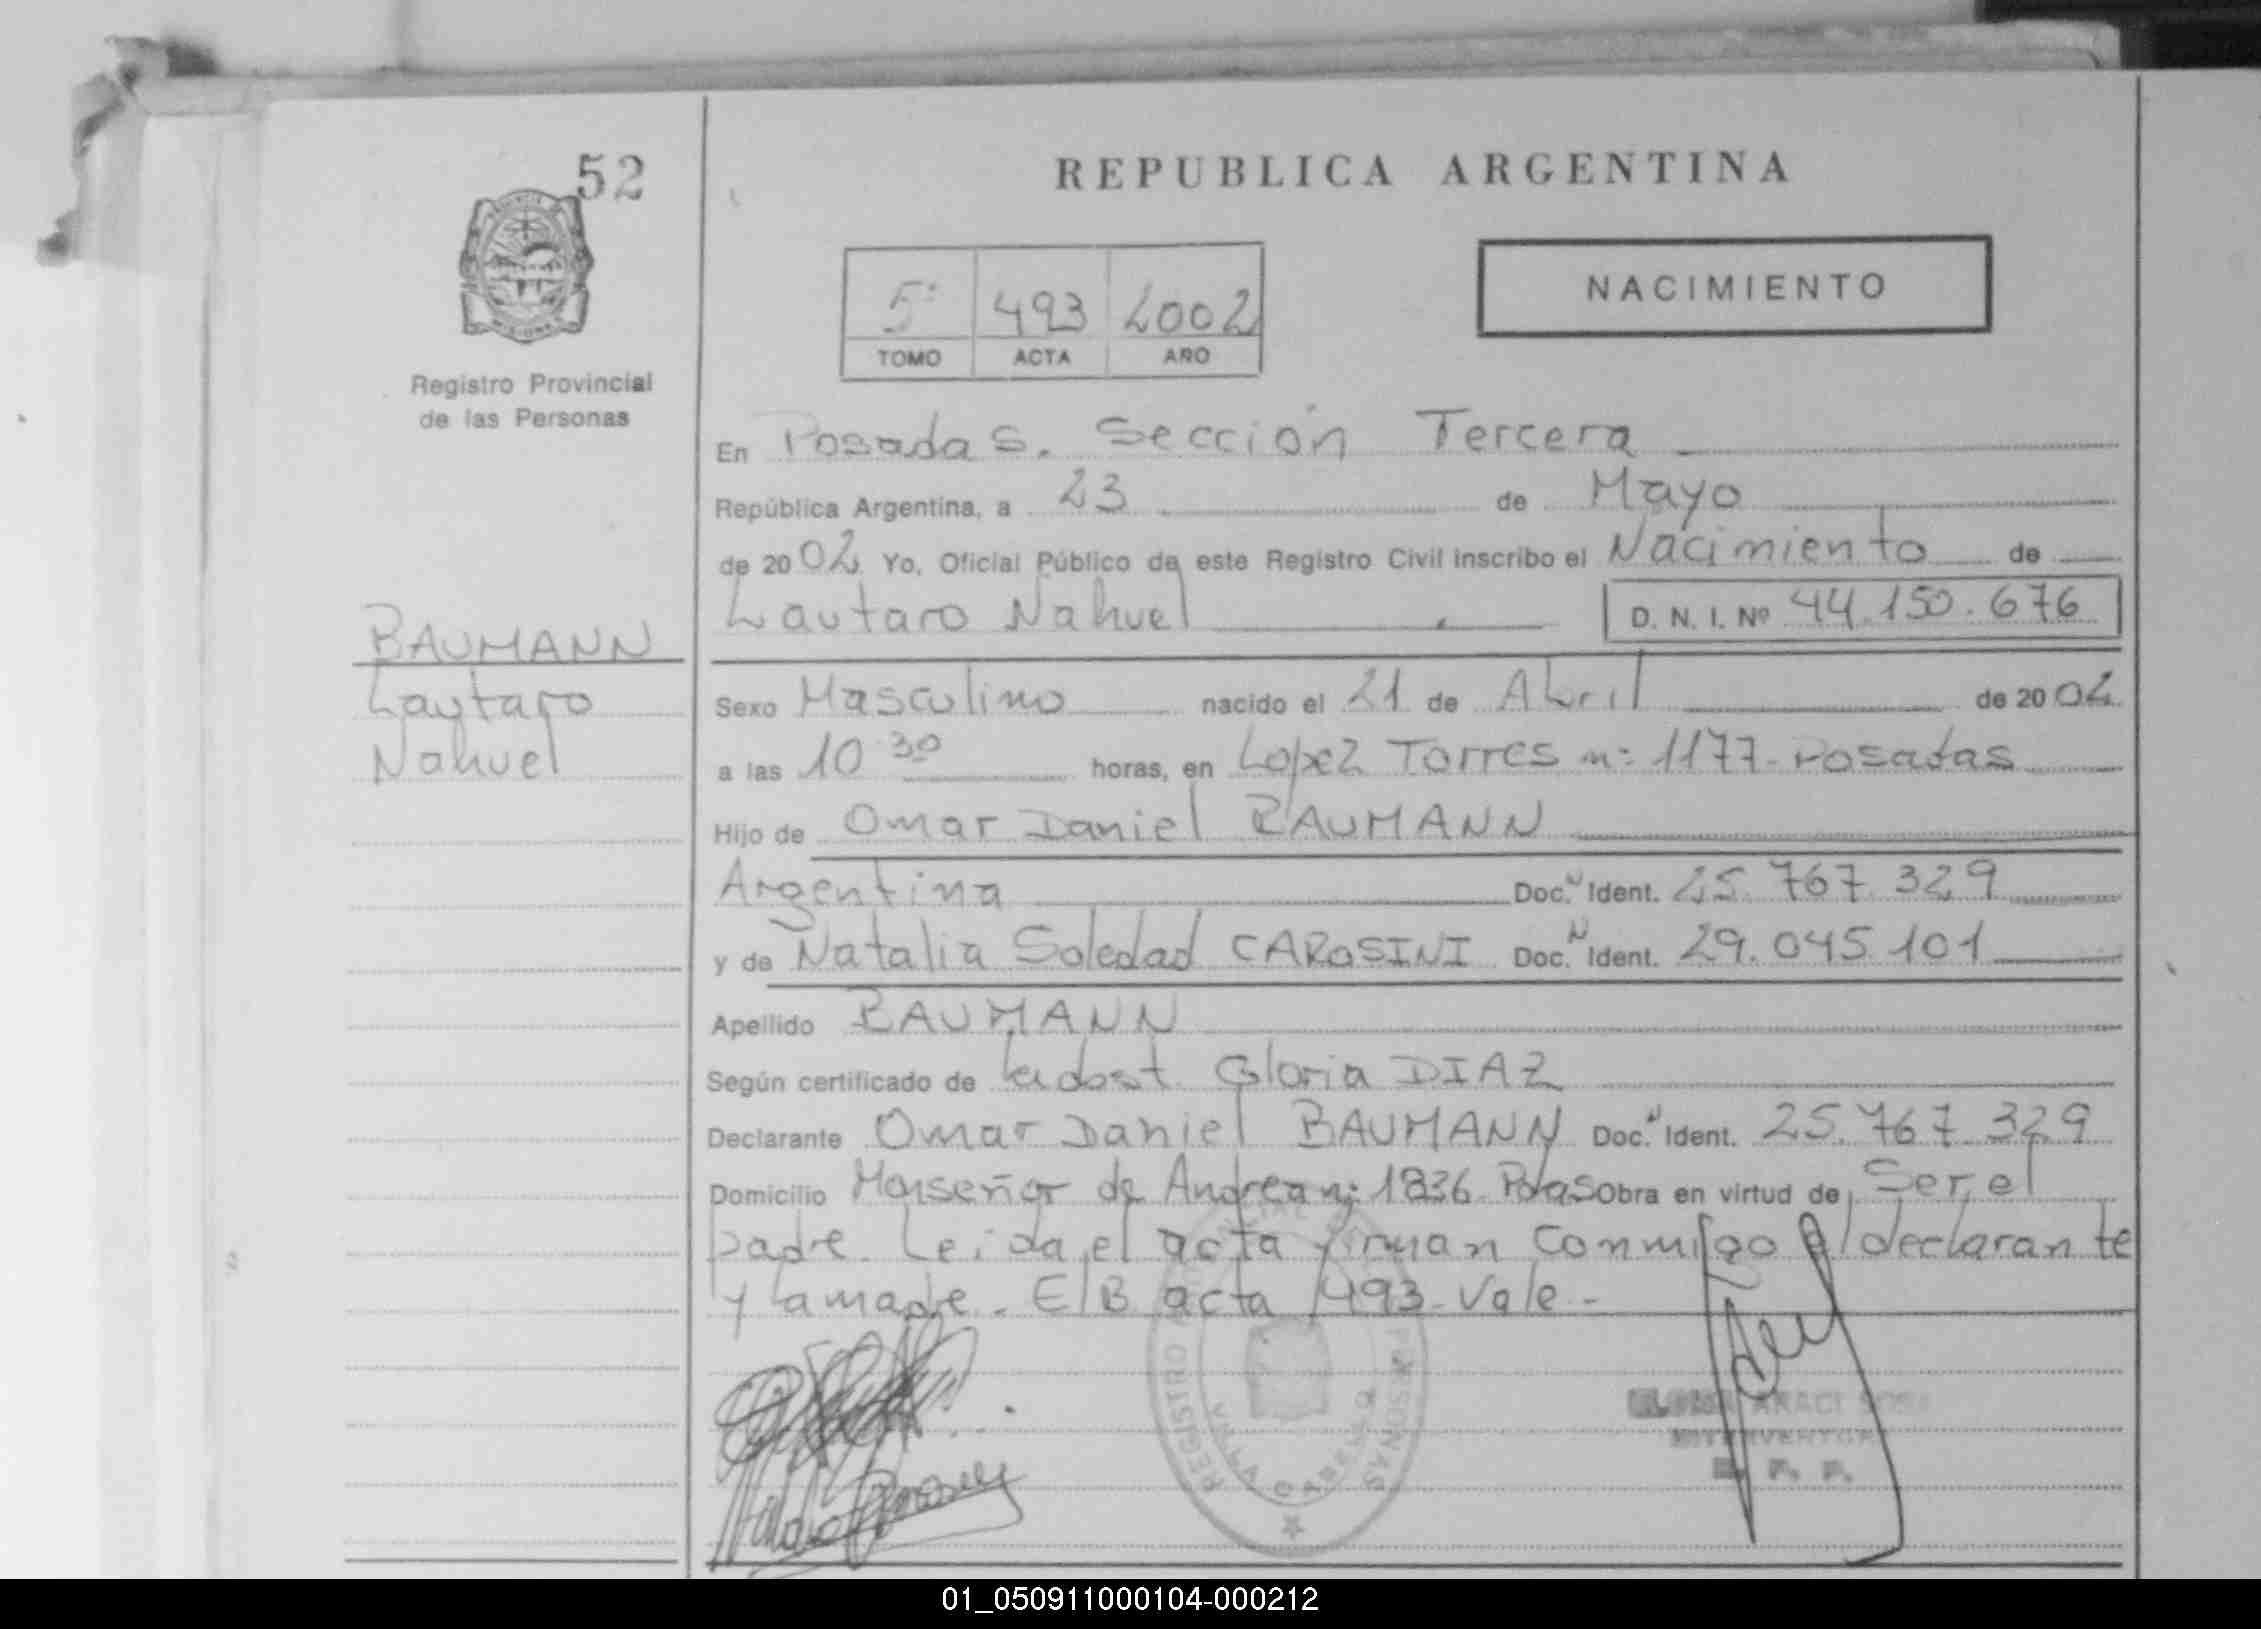 52
REPUBLICA ARGENTINA
NACIMIENTO
5º 493 2002
TOMO ACTA AÑO
Registro Provincial
de las Personas
En Posadas. Sección Tercera
República Argentina, a 23 de Mayo
de 2002 Yo, Oficial Público de este Registro Civil inscribo el Nacimiento de
Lautaro Nahuel D. N. I. Nº 44.150.676
BAUMANN
Lautaro
Nahuel
Sexo Masculino nacido el 21 de Abril de 2002
a las 10 30 horas, en Lopez Torres nº 1177 - Posadas
Hijo de Omar Daniel BAUMANN
Argentina Doc. N Ident. 25.767.329
y de Natalia Soledad CAROSINI Doc. N Ident. 29.045.101
Apellido BAUMANN
Según certificado de Gloria DIAZ
Declarante Omar Daniel BAUMANN Doc. N Ident. 25.767.329
Domicilio Monseñor de Andrea nº 1836 Pdas Obra en virtud de Ser el
padre. Leida el acta firman conmigo el declarante
y la madre. E/B acta 493 - Vale -
REGISTRO PERSONAS
ARACI SOSA
INTERVENTORA
01_050911000104-000212